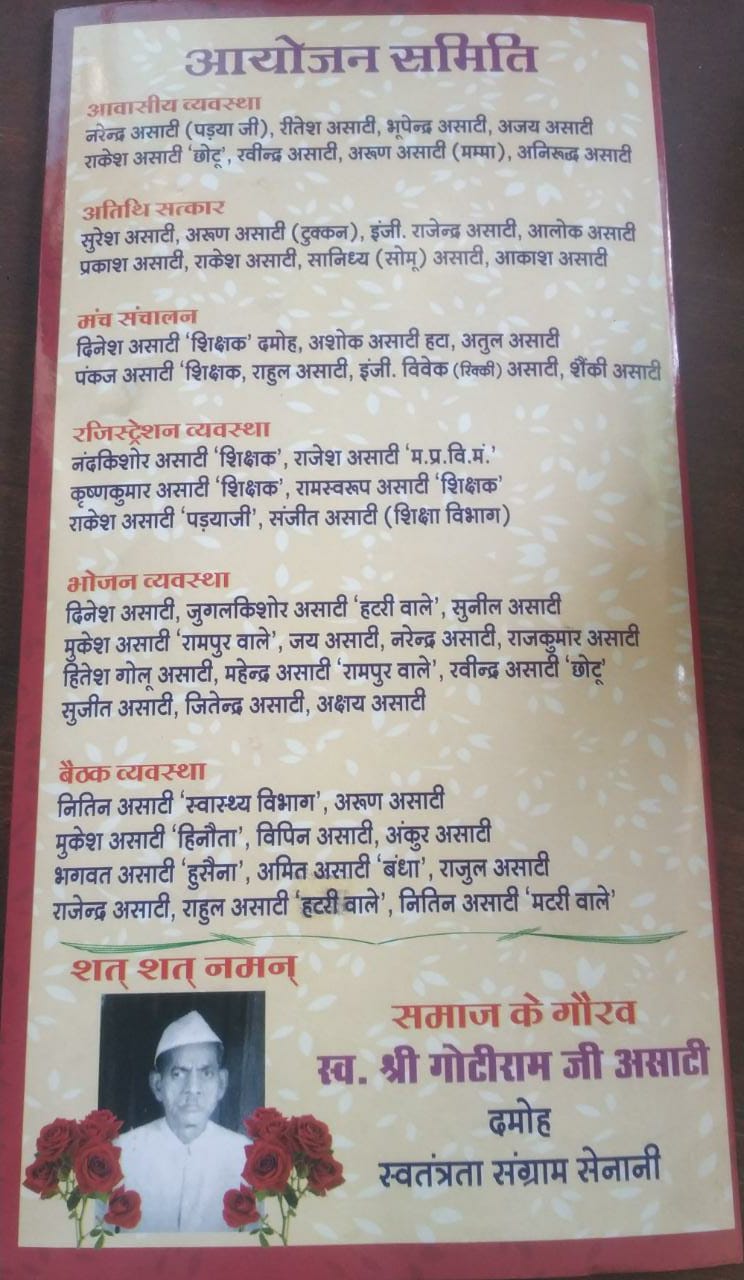 आयोजन समिति
आवासीय व्यवस्था
नरेन्द्र असाटी (पड़या जी), रीतेश असाटी, भूपेन्द्र असाटी, अजय असाटी
राकेश असाटी ‘छोटू’, रवीन्द्र असाटी, अरूण असाटी (मम्मा), अनिरूद्ध असाटी
अतिथि सत्कार
सुरेश असाटी, अरूण असाटी (टुक्कन), इंजी. राजेन्द्र असाटी, आलोक असाटी
प्रकाश असाटी, राकेश असाटी, सानिध्य (सोमू) असाटी, आकाश असाटी
मंच संचालन
दिनेश असाटी ‘शिक्षक’ दमोह, अशोक असाटी हटा, अतुल असाटी
पंकज असाटी ‘शिक्षक, राहुल असाटी, इंजी. विवेक (रिक्की) असाटी, शैंकी असाटी
रजिस्ट्रेशन व्यवस्था
नंदकिशोर असाटी ‘शिक्षक’, राजेश असाटी ‘म.प्र.वि.मं.’
कृष्णकुमार असाटी ‘शिक्षक’, रामस्वरूप असाटी ‘शिक्षक’
राकेश असाटी ‘पड़याजी’, संजीत असाटी (शिक्षा विभाग)
भोजन व्यवस्था
दिनेश असाटी, जुगलकिशोर असाटी ‘हटरी वाले’, सुनील असाटी
मुकेश असाटी ‘रामपुर वाले’, जय असाटी, नरेन्द्र असाटी, राजकुमार असाटी
हितेश गोलू असाटी, महेन्द्र असाटी ‘रामपुर वाले’, रवीन्द्र असाटी ‘छोटू’
सुजीत असाटी, जितेन्द्र असाटी, अक्षय असाटी
बैठक व्यवस्था
नितिन असाटी ‘स्वास्थ्य विभाग’, अरूण असाटी
मुकेश असाटी ‘हिनौता’, विपिन असाटी, अंकुर असाटी
भगवत असाटी ‘हुसैना’, अमित असाटी ‘बंधा’, राजुल असाटी
राजेन्द्र असाटी, राहुल असाटी ‘हटरी वाले’, नितिन असाटी ‘मटरी वाले’
शत् शत् नमन्
समाज के गौरव
स्व. श्री गोटीराम जी असाटी
दमोह
स्वतंत्रता संग्राम सेनानी